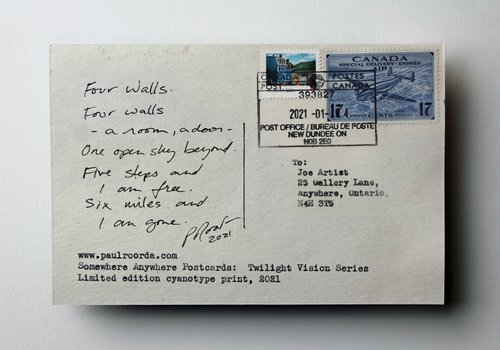 Four walls.
Four walls
- a room, a door -
One open sky beyond.
Five steps and
I am free.
Six miles and
I am gone.
PRoorda
2021
CANADA
SPECIAL DELIVERY - EXPRES
AIR
17 17
CENTS
POSTES
CANADA
POST
393827
2021 -01-
POST OFFICE / BUREAU DE POSTE
NEW DUNDEE ON
N0B 2E0
To:
Joe Artist
25 Gallery Lane,
Anywhere, Ontario,
N4H 3T5
www.paulroorda.com
Somewhere Anywhere Postcards: Twilight Vision Series
Limited edition cyanotype print, 2021